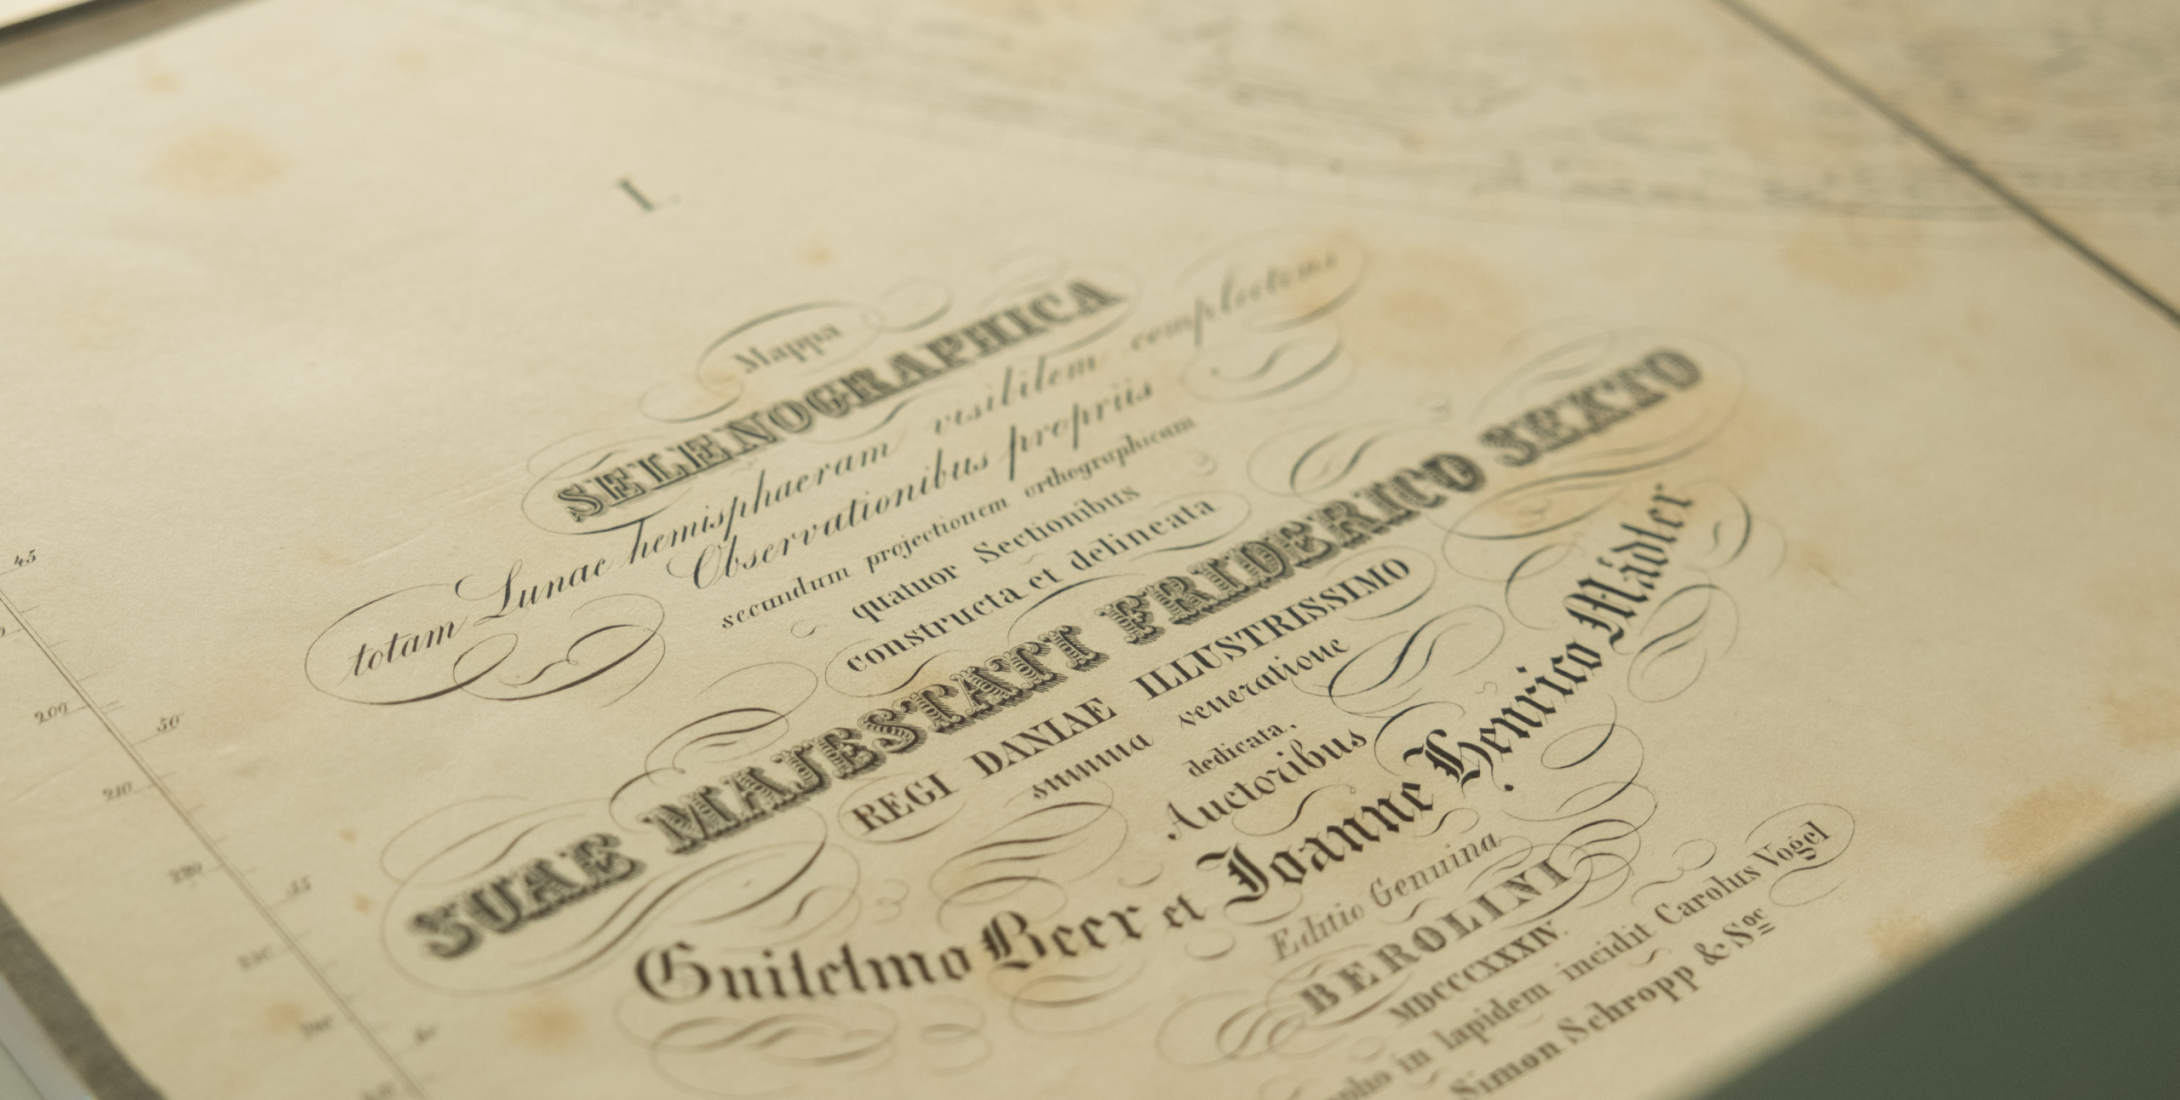 I.
Mappa
SELENOGRAPHICA
totam Lunae hemisphaeram visibilem complectens
Observationibus propriis
secundum projectionem orthographicam
quatuor Sectionibus
constructa et delineata
SUAE MAJESTATI FRIDERICO SEXTO
REGI DANIAE ILLUSTRISSIMO
summa veneratione
dedicata.
Auctoribus
Guilelmo Beer et Joanne Henrico Mädler
Editio Genuina
BEROLINI
MDCCCXXXIV.
in lapidem incidit Carolus Vogel
Simon Schropp & Soc
45
200
50
210
220
55